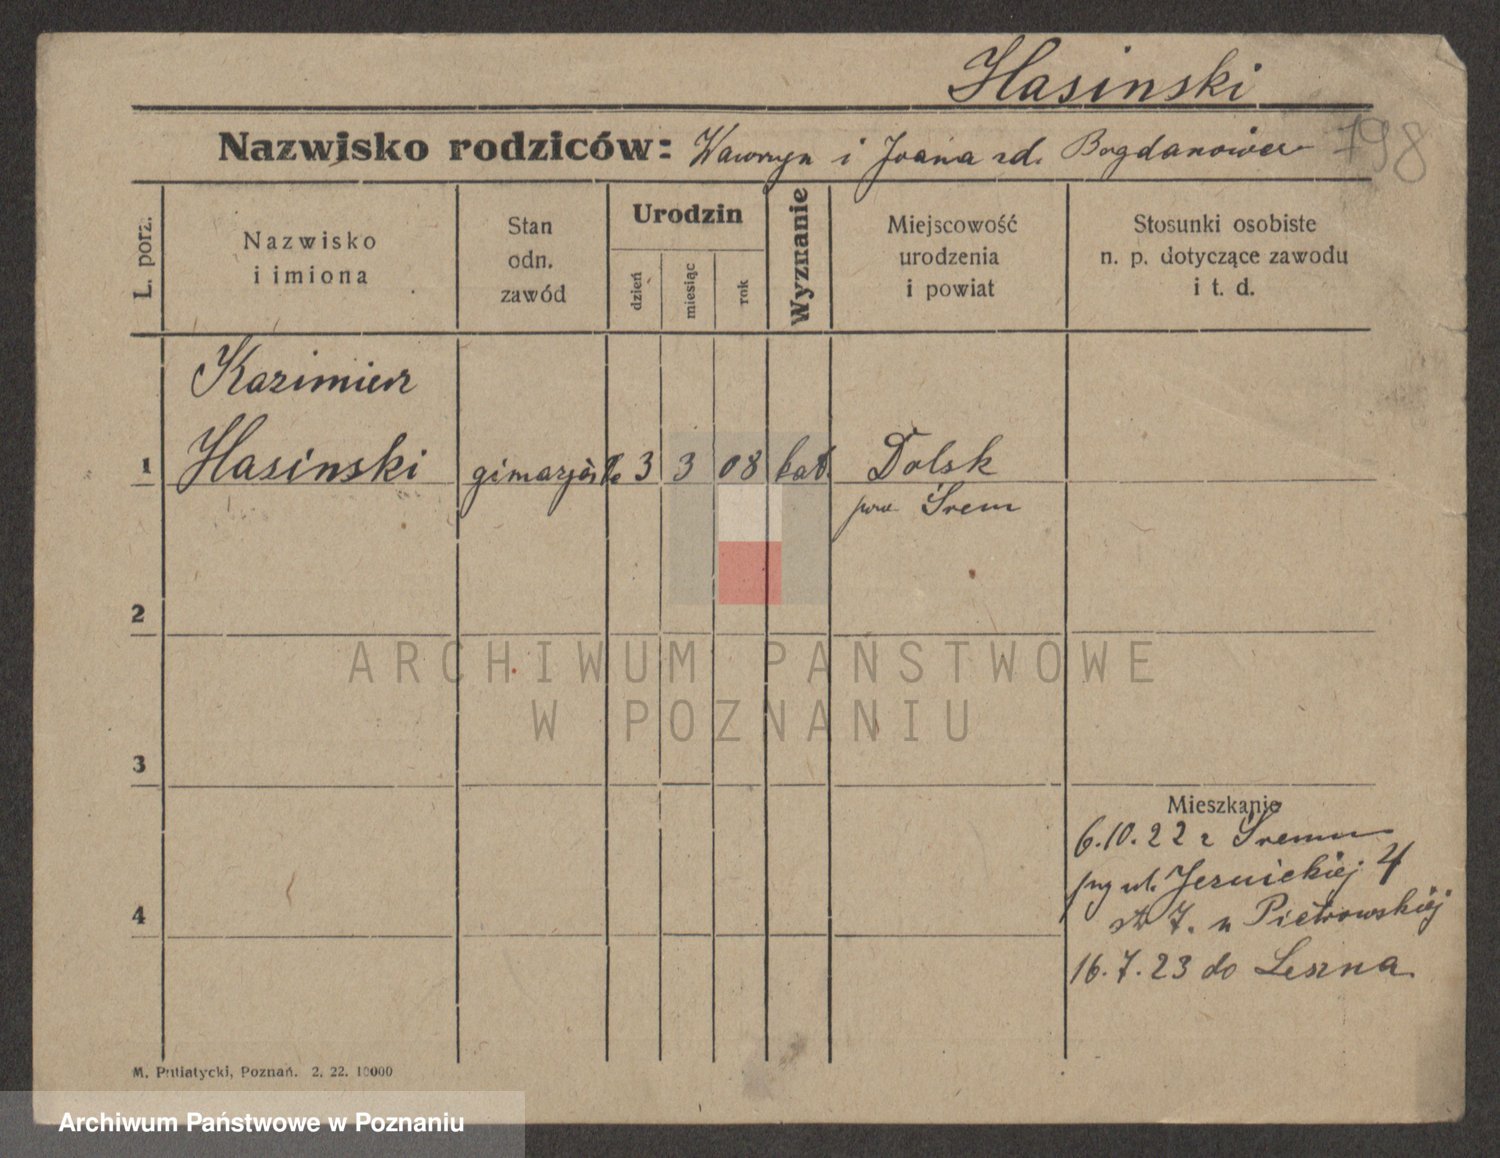 Hasinski
798
Nazwisko rodziców: Wawrzyn i Joana zd. Bogdanowicz
L. porz.
Nazwisko
i imiona
Stan
odn.
zawód
Urodzin
dzień
miesiąc
rok
Wyznanie
Miejscowość
urodzenia
i powiat
Stosunki osobiste
n. p. dotyczące zawodu
i t. d.
Kazimierz
1 Hasinski 3 3 08 kat. Dolsk
pow Śrem
2
3
4
Mieszkanie
6.10.22 z Śremu
przy ul. Jezuickiej 4
7. u Pietrowskiej
16.7.23 do Leszna
M. Putiatycki, Poznań. 2. 22. 10000
ARCHIWUM PAŃSTWOWE
W POZNANIU
Archiwum Państwowe w Poznaniu